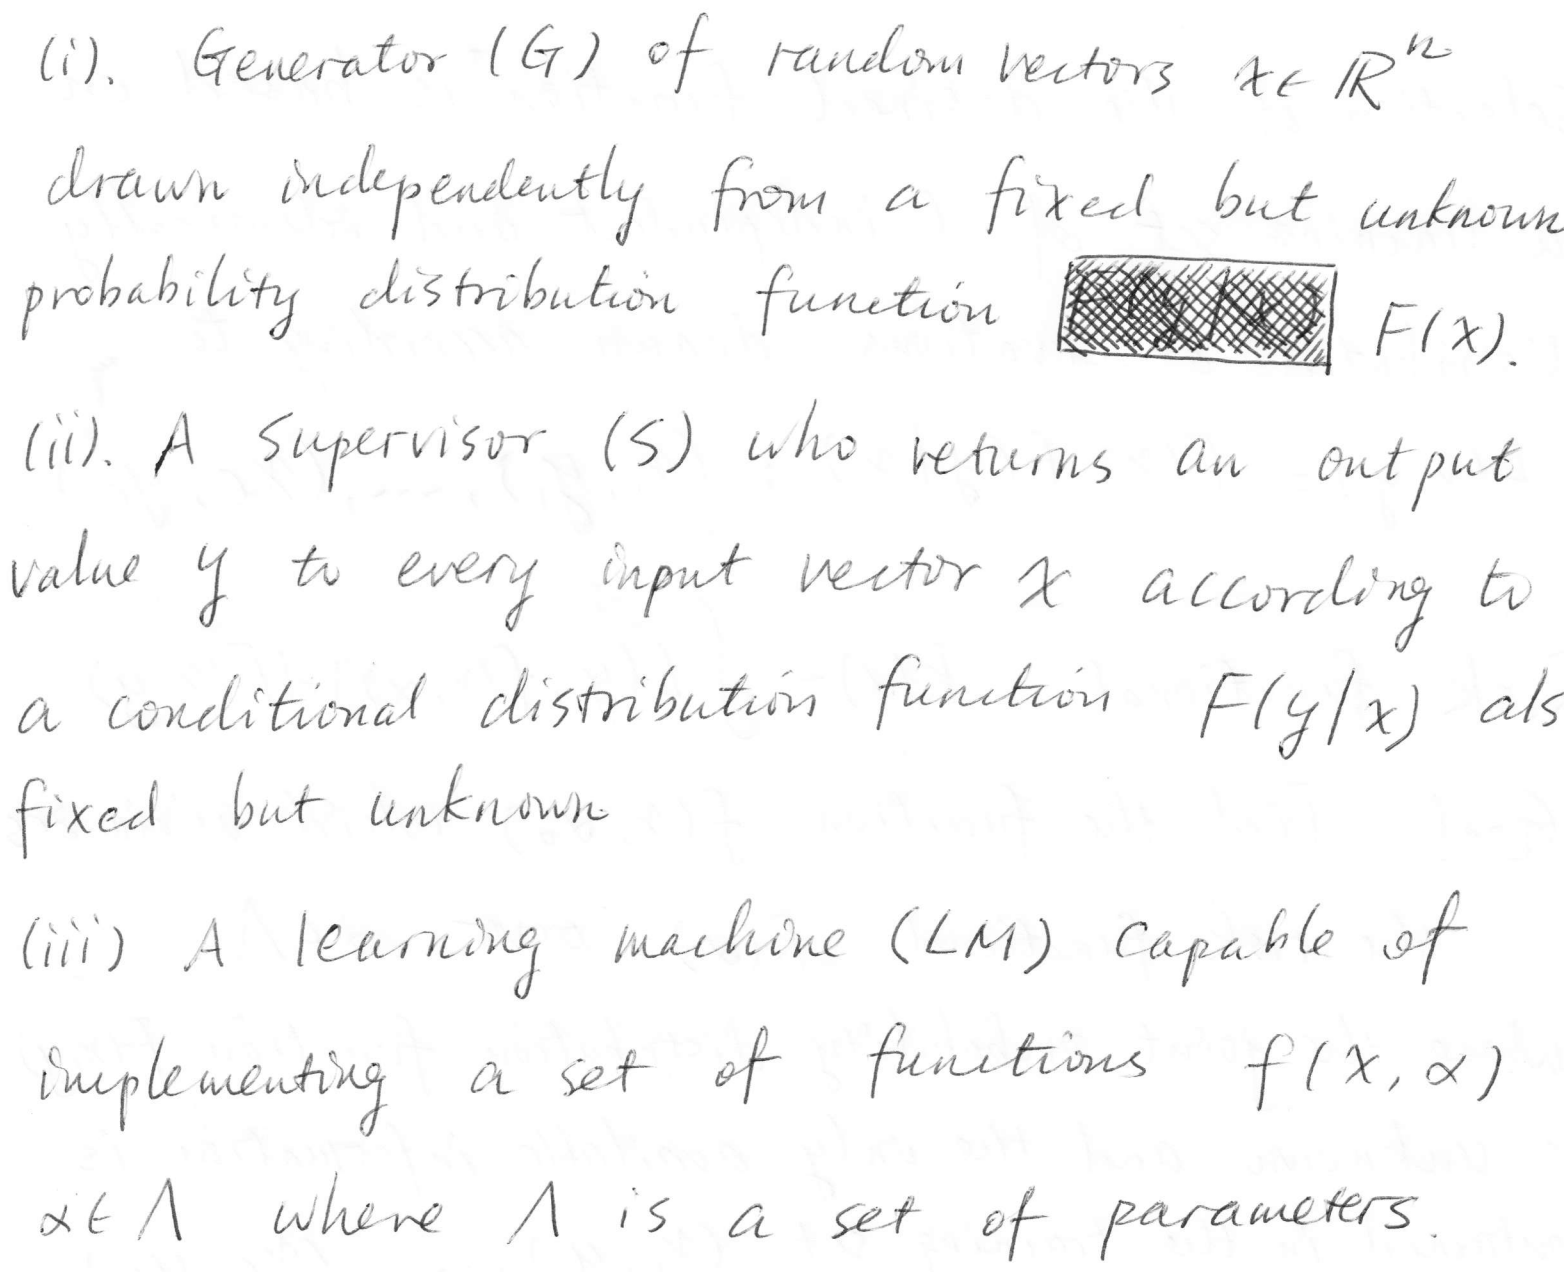 (i). Generator (G) of random vectors x ∈ ℝⁿ
drawn independently from a fixed but unknown
probability distribution function F(x).
(ii). A Supervisor (S) who returns an output
value y to every input vector x according to
a conditional distribution function F(y|x) als
fixed but unknown
(iii) A learning machine (LM) capable of
implementing a set of functions f(x, α)
α ∈ Λ where Λ is a set of parameters.